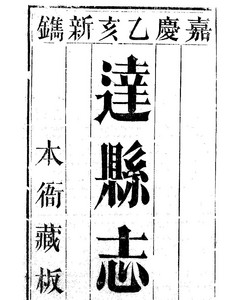 嘉慶乙亥新鐫
達縣志
本衙藏板